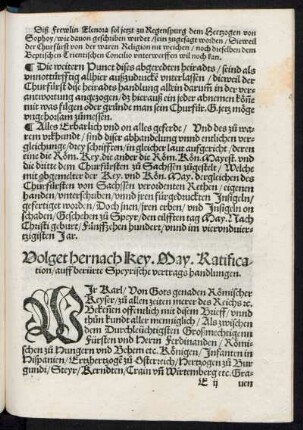 Diß Frewlin Elenora sol jetzt zu Regenspurg dem Hertzogen von
Sophoy / wie dauon geschriben werdet / sein zugesagt worden / Dieweil
der Churfürst von der waren Religion nit weichen / noch dieselben dem
Bepstischen Trientischen Concilio vnterwerffen wil noch kan.
¶ Die weitern Punct dises abgeredten heiradts / seind als
vnnottürfftig allhier außzudrucke vnterlassen / dieweil der
Churfürst dise heiradts handlung allein darum in der ver-
antwortung angezogen / dz hieraus ein jeder abnemen köne
mit was fügen oder gründe man sein Churfür. G. jetz möge
vngehorsam zumessen.
¶ Alles Erbarlich vnd on alles geferde / Vnd des zu wa-
rem vrkhundt / sind diser abhandlung vnnd entlichen ver-
gleichunge / drey schrifften / in gleicher laut auffgericht / derer
eine die Röm. Key. die ander die Röm. Kön. Mayest. vnd
die dritte dem Churfürsten zu Sachssen zugestelt / Welche
mit abgemelter der Key. vnd Kön. May. dergleichen des
Churfürsten von Sachssen verordenten Rethen / eigenen
handen / vnterschriben / vnnd jren fürgedruckten Insigeln /
gefertiget worden / Doch jnen / jren erben / vnd Insigeln on
schaden / Geschehen zu Speyr / den eilfften tag May. Nach
Christi geburt / Fünffzehen hundert / vnnd im vierundvier-
tzigisten Jar.
Volget hernach Key. May. Ratifica-
tion / auff berürte Speyrische vertrags handlungen.
Wir Karl / Von Gots genaden Römischer
Keyser / zu allen zeiten merer des Reichs ꝛc.
Bekenen offentlich mit disem Brieff / vnnd
thun kundt aller menniglich / Als zwischen
dem Durchleüchtigisten Grosmechtigē
Fürsten vnd Herrn Ferdinanden / Römi-
schen zu Hungern vnd Behem ꝛc. Königen / Infanten in
Hispanien / Ertzhertzogē zu Osterreich / Hertzogen zu Bur-
gundi / Steyr / Kerndten / Crain vn̄ Wirtemberg ꝛc. Gra-
E ij
uen